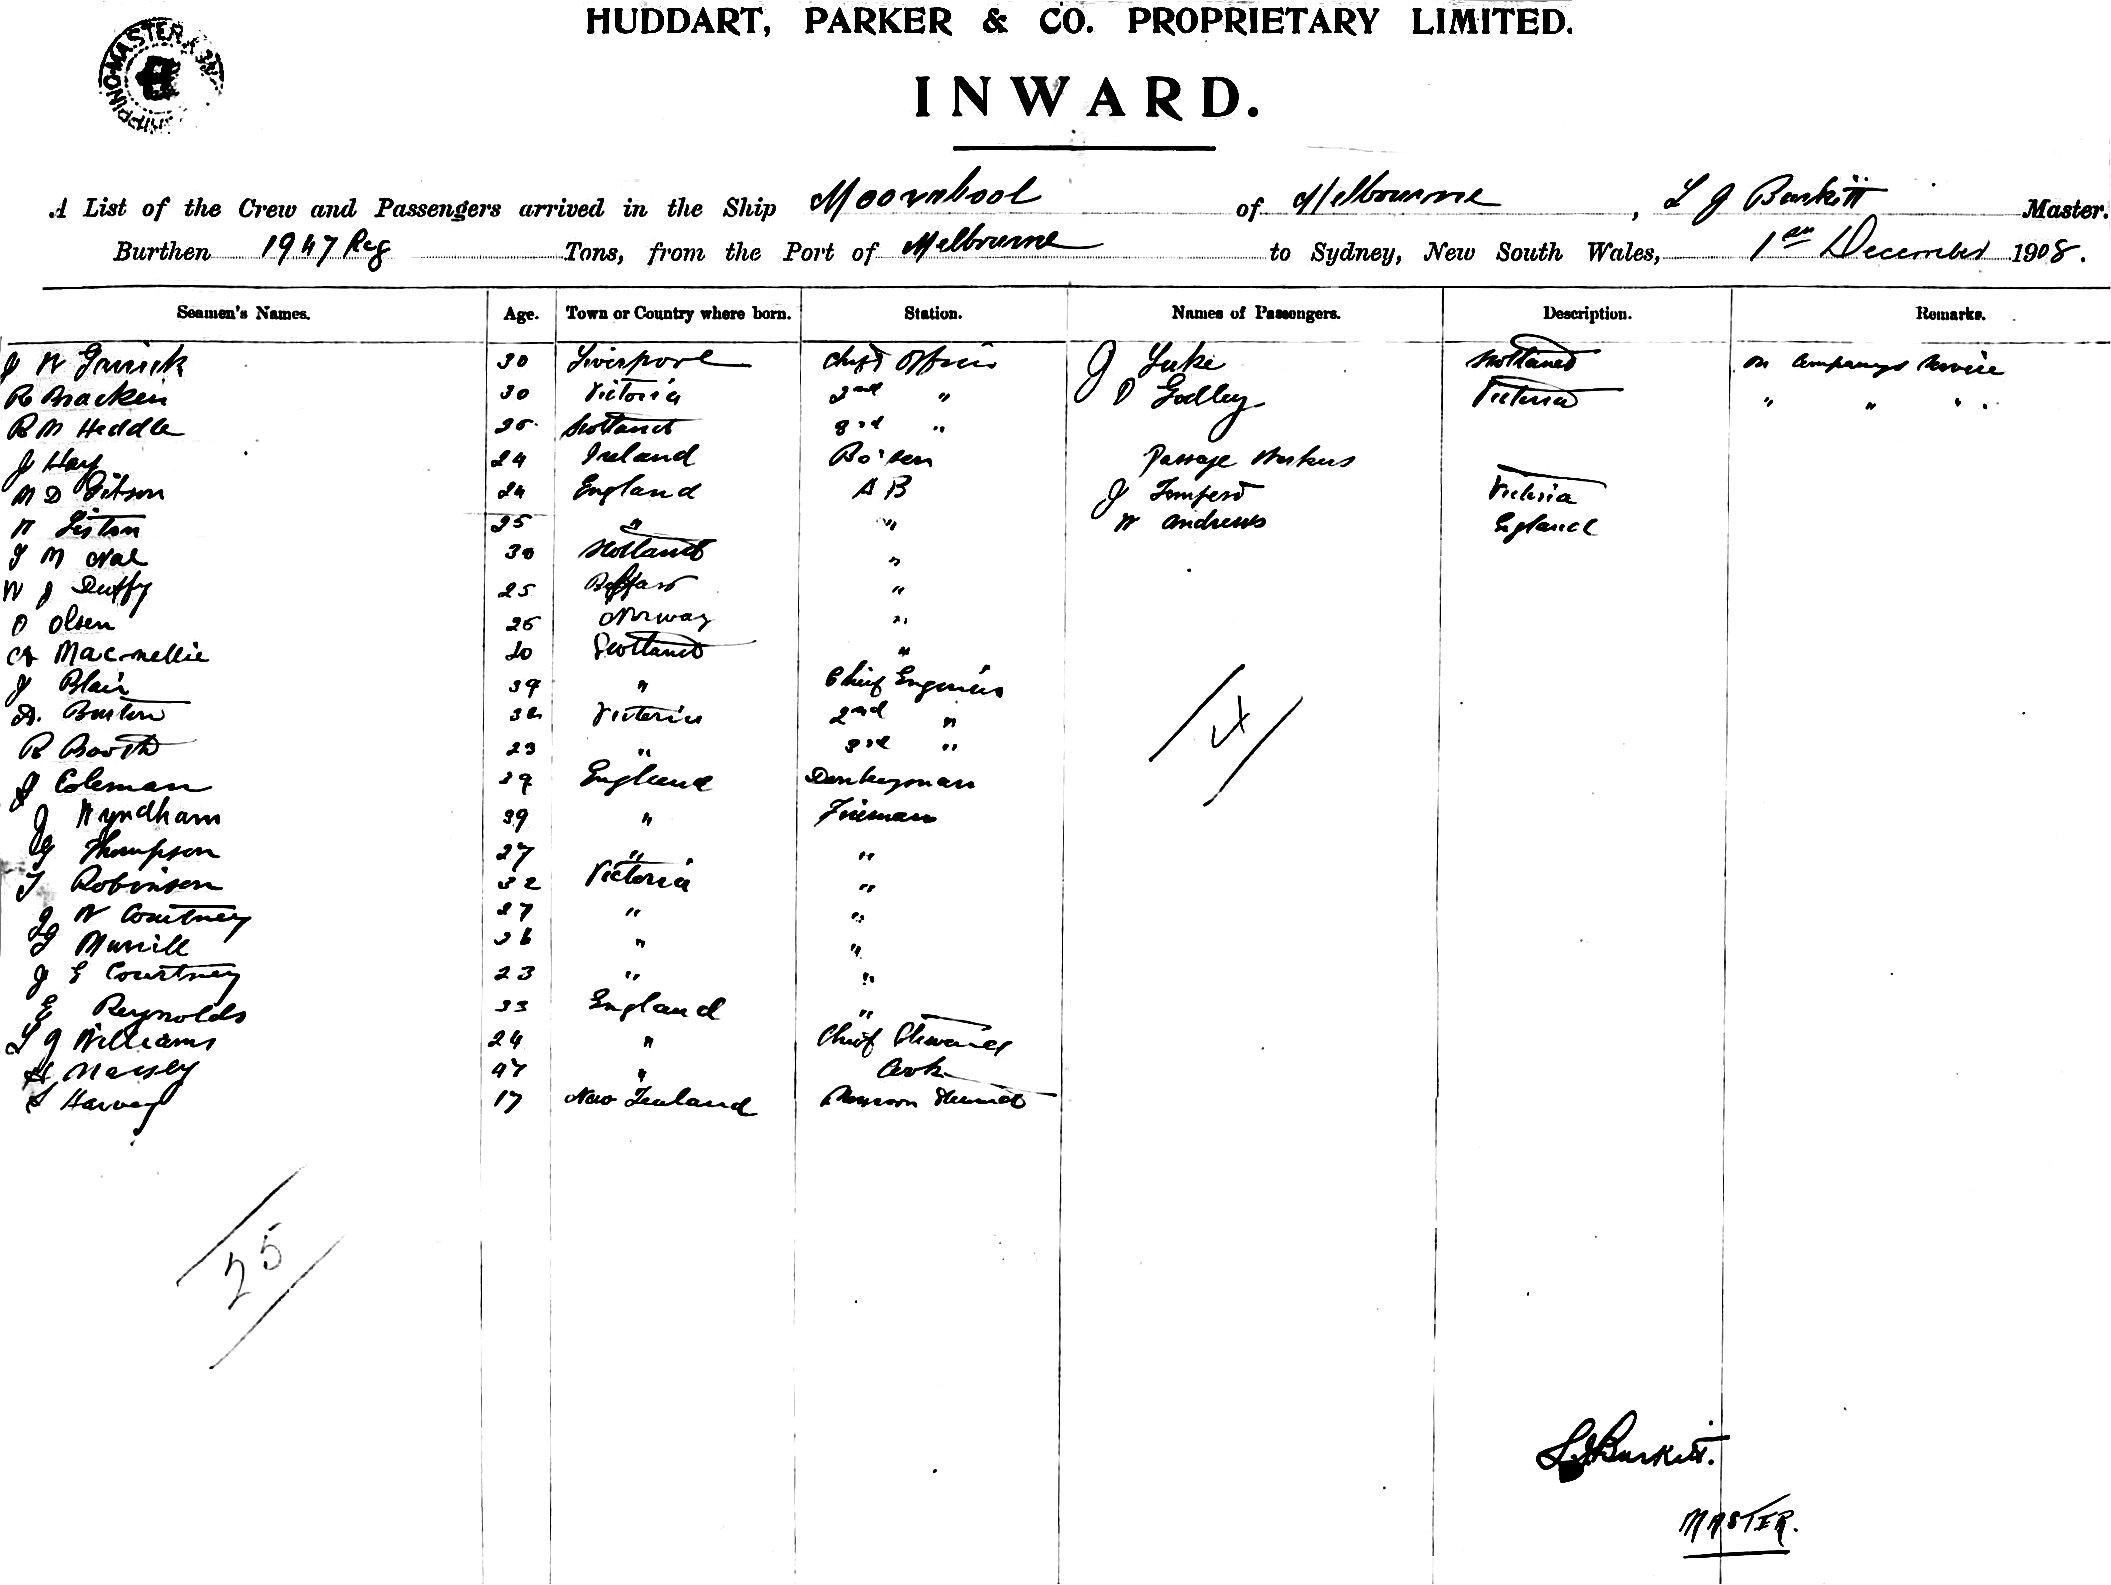 HUDDART, PARKER & CO. PROPRIETARY LIMITED.
INWARD.
SHIPPING MASTER
A List of the Crew and Passengers arrived in the Ship Moorabool of Melbourne, L J Burkitt Master.
Burthen 1947 Reg Tons, from the Port of Melbourne to Sydney, New South Wales, 1 December 1908.
Seamen's Names. Age. Town or Country where born. Station. Names of Passengers. Description. Remarks.
J W 30 Liverpool Chief Officer J Luke Scotland on Companys Service
R Bracken 30 Victoria 2nd " D Godley Victoria " " " "
R M Heddle 25 Scotland 3rd "
J Hay 24 Ireland Bo'sen Passage Workers
24 England A B J Victoria
25 " " W Andrews England
30 Scotland "
W J Duffy 25 "
O Olsen 26 Norway "
20 Scotland "
J Blair 39 " Chief Engineer
A. Burton Victoria 2nd "
R Booth 23 " 3rd "
J Coleman 39 England Donkeyman
J Wyndham 39 " Fireman
Thompson 27 " "
T Robinson 32 Victoria "
J W Courtney 27 " "
36 " "
J E Courtney 23 " "
E Reynolds 33 England "
L J Williams 24 " Chief Steward
47 " Cook
S Harvey 17 New Zealand Messroom Steward
4
25
L J Burkitt.
MASTER.